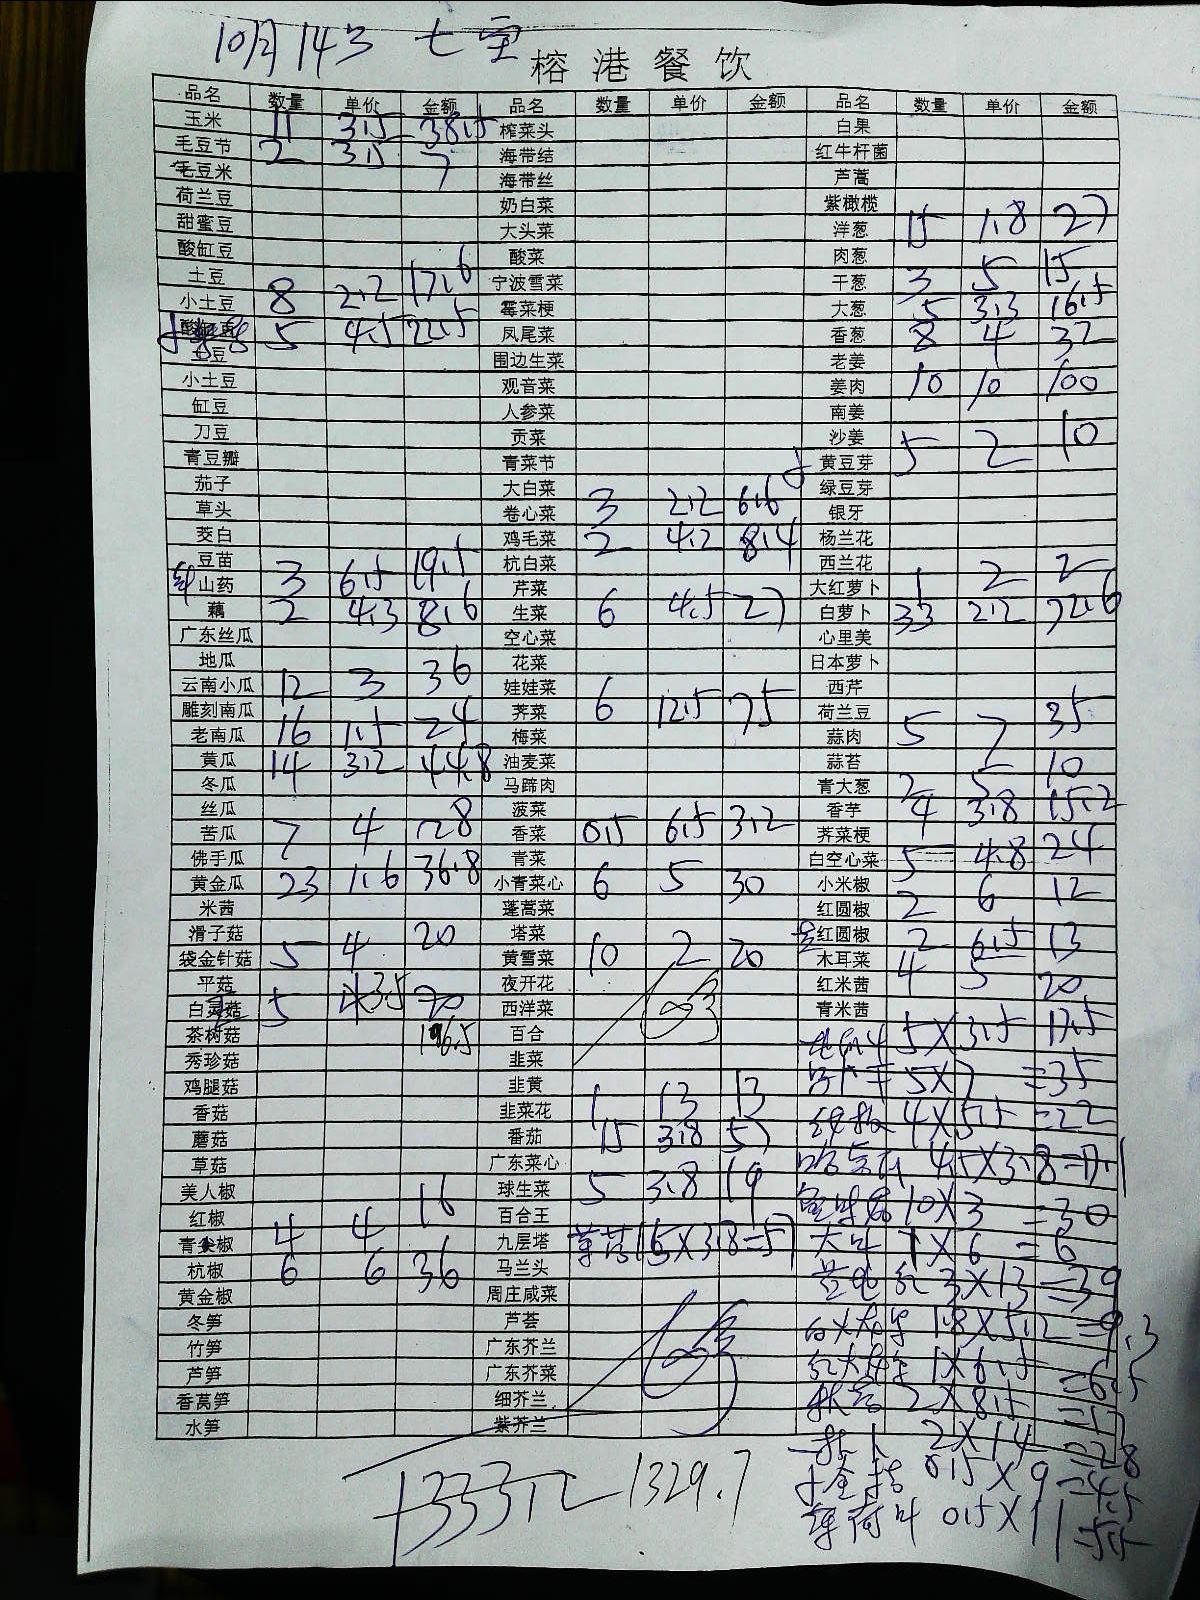 10月14号
榕港餐饮
品名 数量 单价 金额 品名 数量 单价 金额 品名 数量 单价 金额
玉米 11 3.5 38.5 榨菜头 白果
毛豆节 2 3.5 7 海带结 红牛杆菌
毛豆米 海带丝 芦蒿
荷兰豆 奶白菜 紫橄榄
甜蜜豆 大头菜 洋葱 15 1.8 27
酸缸豆 酸菜 肉葱
土豆 8 2.2 17.6 宁波雪菜 干葱 3 5 15
小土豆 霉菜梗 大葱 5 3.3 16.5
5 4.5 22.5 凤尾菜 香葱 8 4 32
土豆 围边生菜 老姜
小土豆 观音菜 姜肉 10 10 100
缸豆 人参菜 南姜
刀豆 贡菜 沙姜
青豆瓣 青菜节 黄豆芽 5 2 10
茄子 大白菜 3 2.2 6.6 绿豆芽
草头 卷心菜 银牙
茭白 鸡毛菜 2 4.2 8.4 杨兰花
豆苗 杭白菜 西兰花
山药 3 6.5 19.5 芹菜 大红萝卜 1 2 2
藕 2 4.3 8.6 生菜 6 4.5 27 白萝卜 33 2.2 72.6
广东丝瓜 空心菜 心里美
地瓜 花菜 日本萝卜
云南小瓜 12 3 36 娃娃菜 6 12.5 75 西芹
雕刻南瓜 荠菜 荷兰豆
老南瓜 16 1.5 24 梅菜 蒜肉 5 7 35
黄瓜 14 3.2 44.8 油麦菜 蒜苔
冬瓜 马蹄肉 青大葱 2 5 10
丝瓜 菠菜 香芋 4 3.8 15.2
苦瓜 7 4 28 香菜 0.5 6.5 3.2 荠菜梗
佛手瓜 青菜 白空心菜 5 4.8 24
黄金瓜 23 1.6 36.8 小青菜心 6 5 30 小米椒
米茜 蓬蒿菜 红圆椒 2 6 12
滑子菇 塔菜 红圆椒 2 6.5 13
袋金针菇 5 4 20 黄雪菜 10 2 20 木耳菜 4 5 20
平菇 夜开花 红米茜
白灵菇 5 3.5 西洋菜 青米茜
茶树菇 百合 5×3.5 17.5
秀珍菇 韭菜
鸡腿菇 韭黄 5×7 =35
香菇 韭菜花 1 13 13 4×5.5 =22
蘑菇 番茄 15 3.8 57
草菇 广东菜心 4.5×3.8=17.1
美人椒 球生菜 5 3.8 19 10×3 =30
红椒 4 4 16 百合王
青尖椒 九层塔 15×3.8=57 1×6 =6
杭椒 6 6 36 马兰头 3×13=39
黄金椒 周庄咸菜
冬笋 芦荟 1.8×5.2=9.3
竹笋 广东芥兰
芦笋 广东芥菜 1×6.5 =6.5
香莴笋 细芥兰 2×8.5 =17
水笋 紫芥兰
2×14 =28
1333元 1329.7 0.5×9=4.5
薄荷叶 0.5×11=5.5